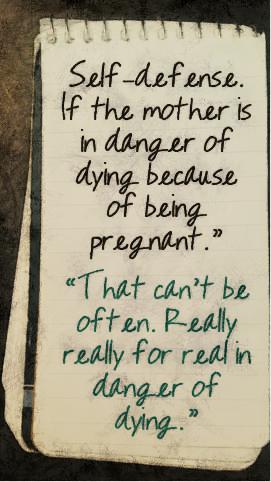 Self-defense.
If the mother is
in danger of
dying because
of being
pregnant."
"That can't be
often. Really
really for real in
danger of
dying."